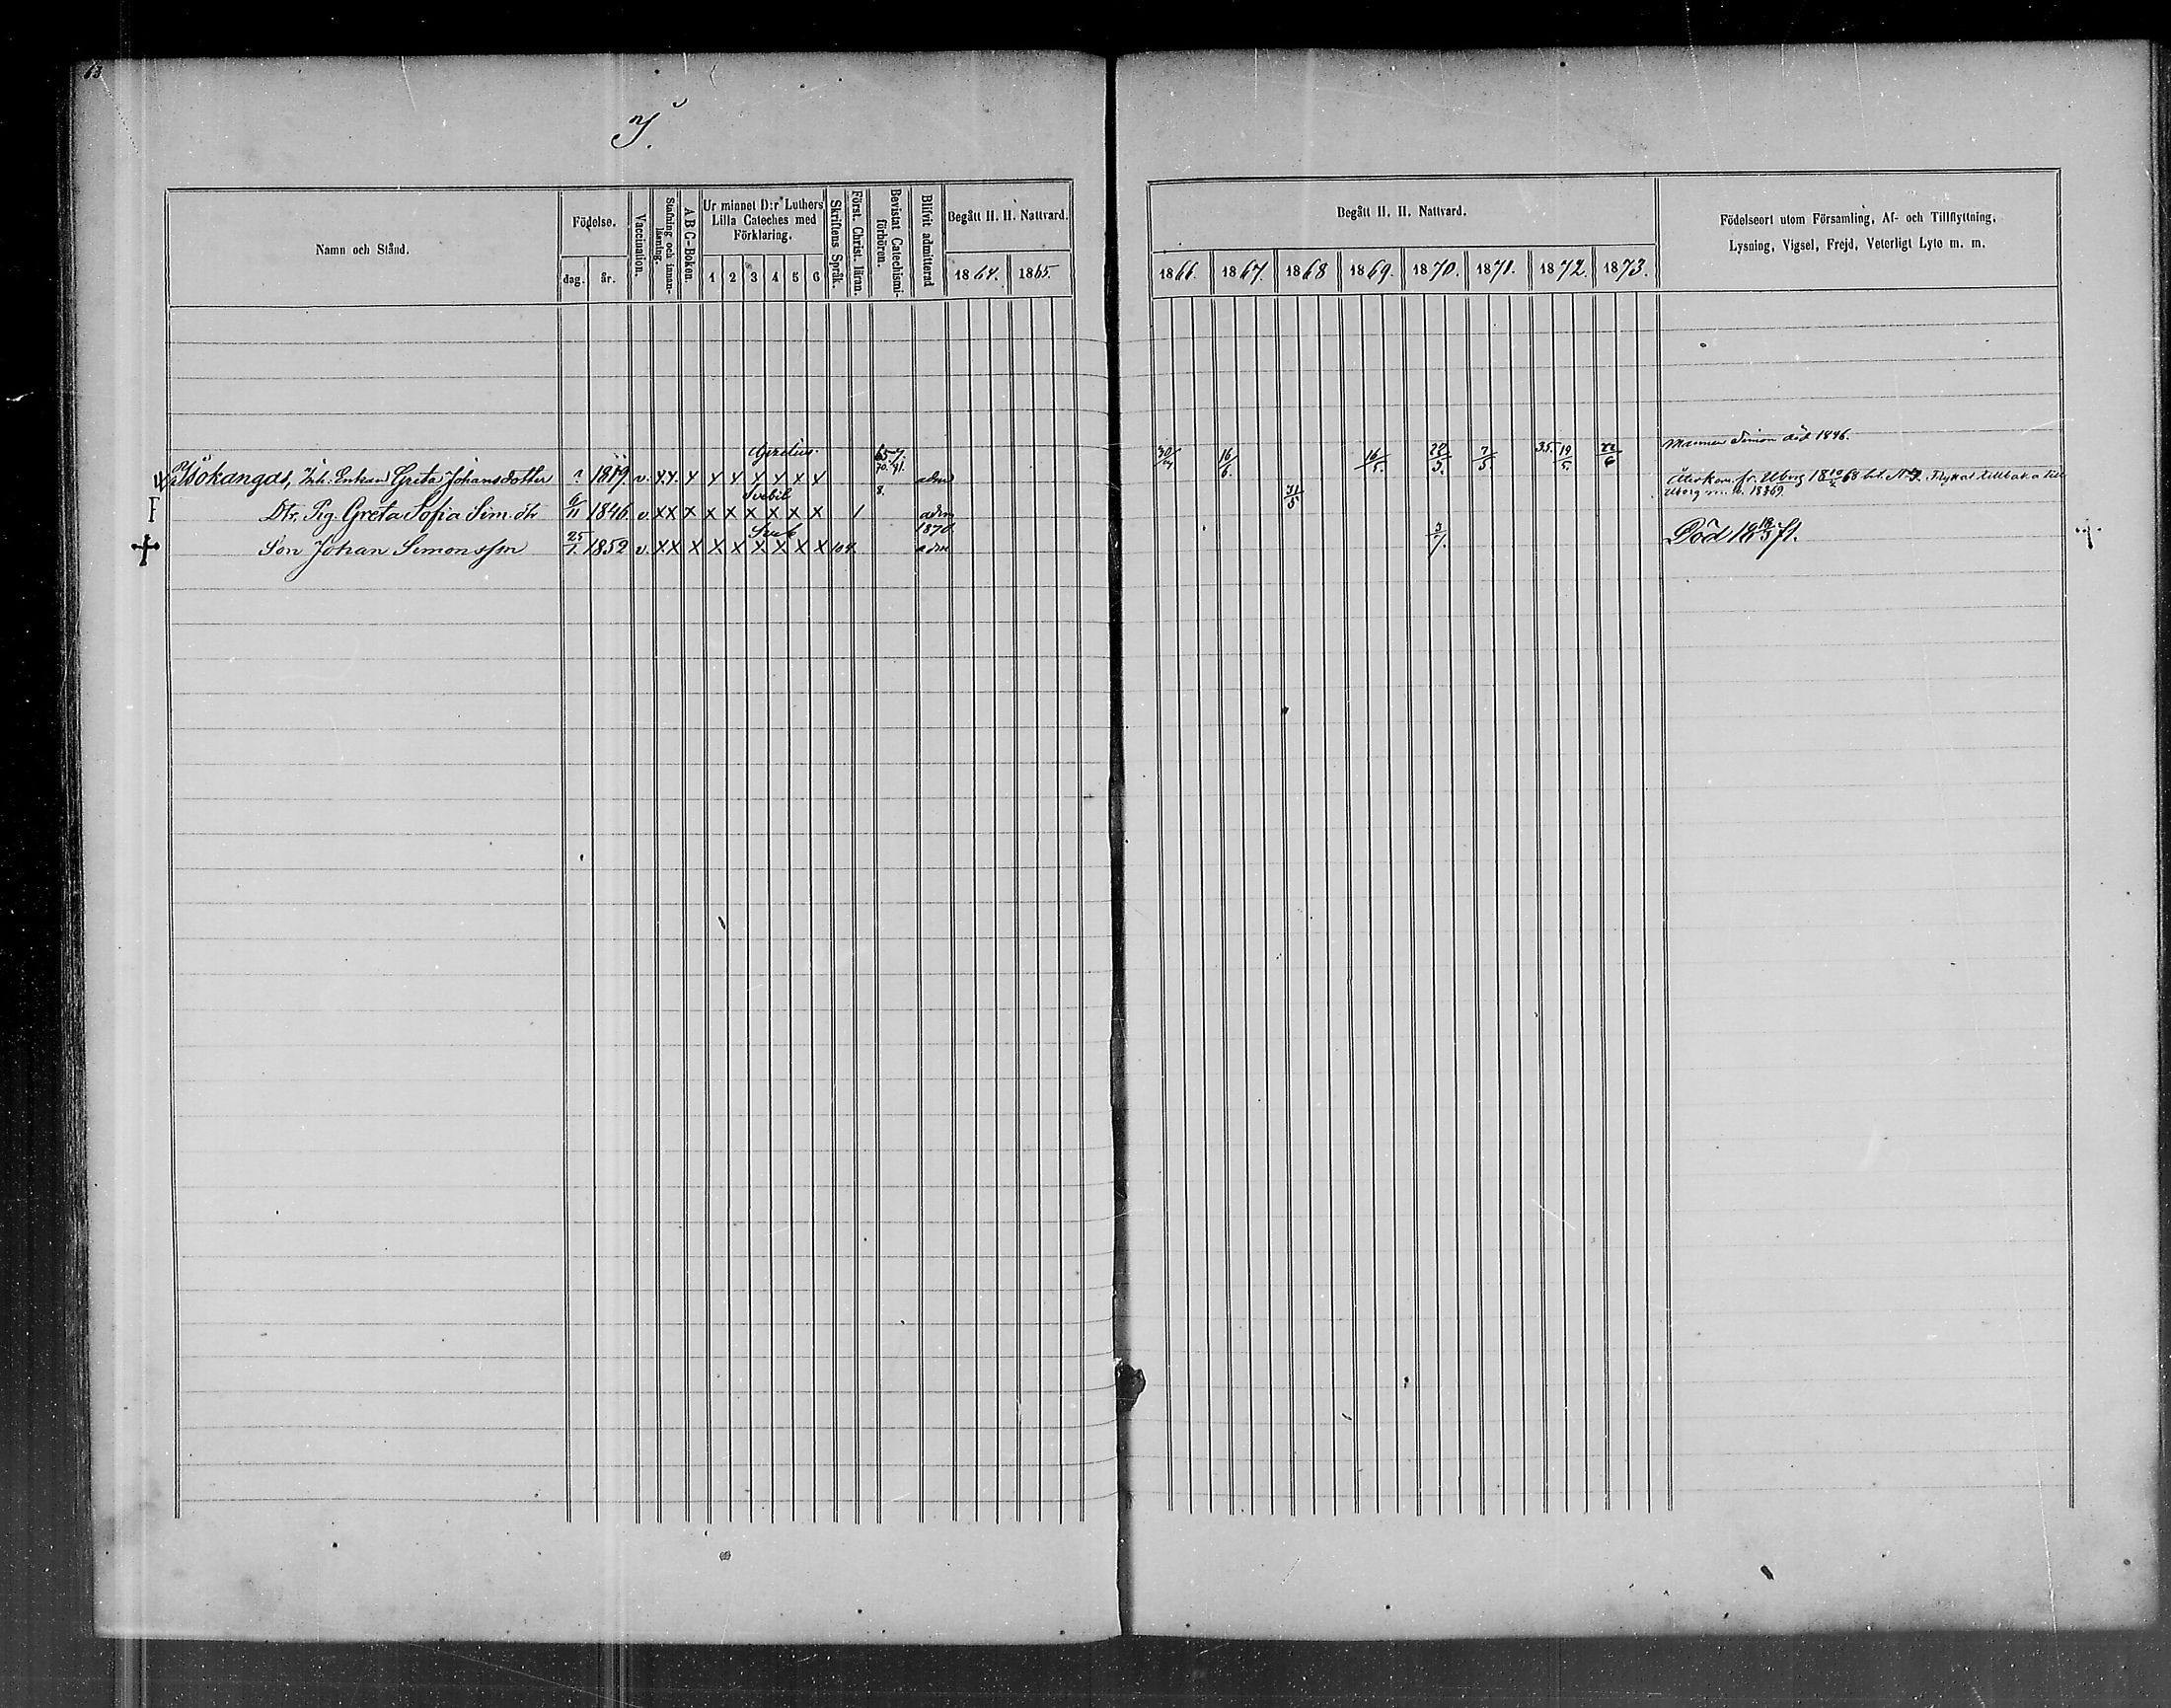 63
Namn och Stånd.
Födelse.
dag. år.
Vaccination.
Stafning och innanläsning.
A B C-Boken.
Ur minnet D:r Luthers Lilla Cateches med Förklaring.
1 2 3 4 5 6
Skriftens Språk.
Först. Christ. läran.
Bevistat Catechismiförhören.
Blifvit admitterad
Begått H. H. Nattvard.
1864. 1865.
Begått H. H. Nattvard.
1866. 1867. 1868 1869. 1870. 1871. 1872. 1873.
Födelseort utom Församling, Af- och Tillflyttning,
Lysning, Vigsel, Frejd, Veterligt Lyte m. m.
65 7.
70. 71.
30/ 16/6. 16/5. 22/5. 7/5. 35. 19/5. 22/6
Mannen Simon död 1846.
Greta Johansdotter 1819 v. x x. x x x x x x x adm
Svebil 8. 31/5
Dtr. Pig. Greta Sofia Sim. dtr 6/11 1846 v. x x x x x x x x x 1 adm
Sveb 1870
Son Johan Simonsson 25/7. 1852 v. x x x x x x x x x 104 adm 3/7.
Död 18 18/3 71.